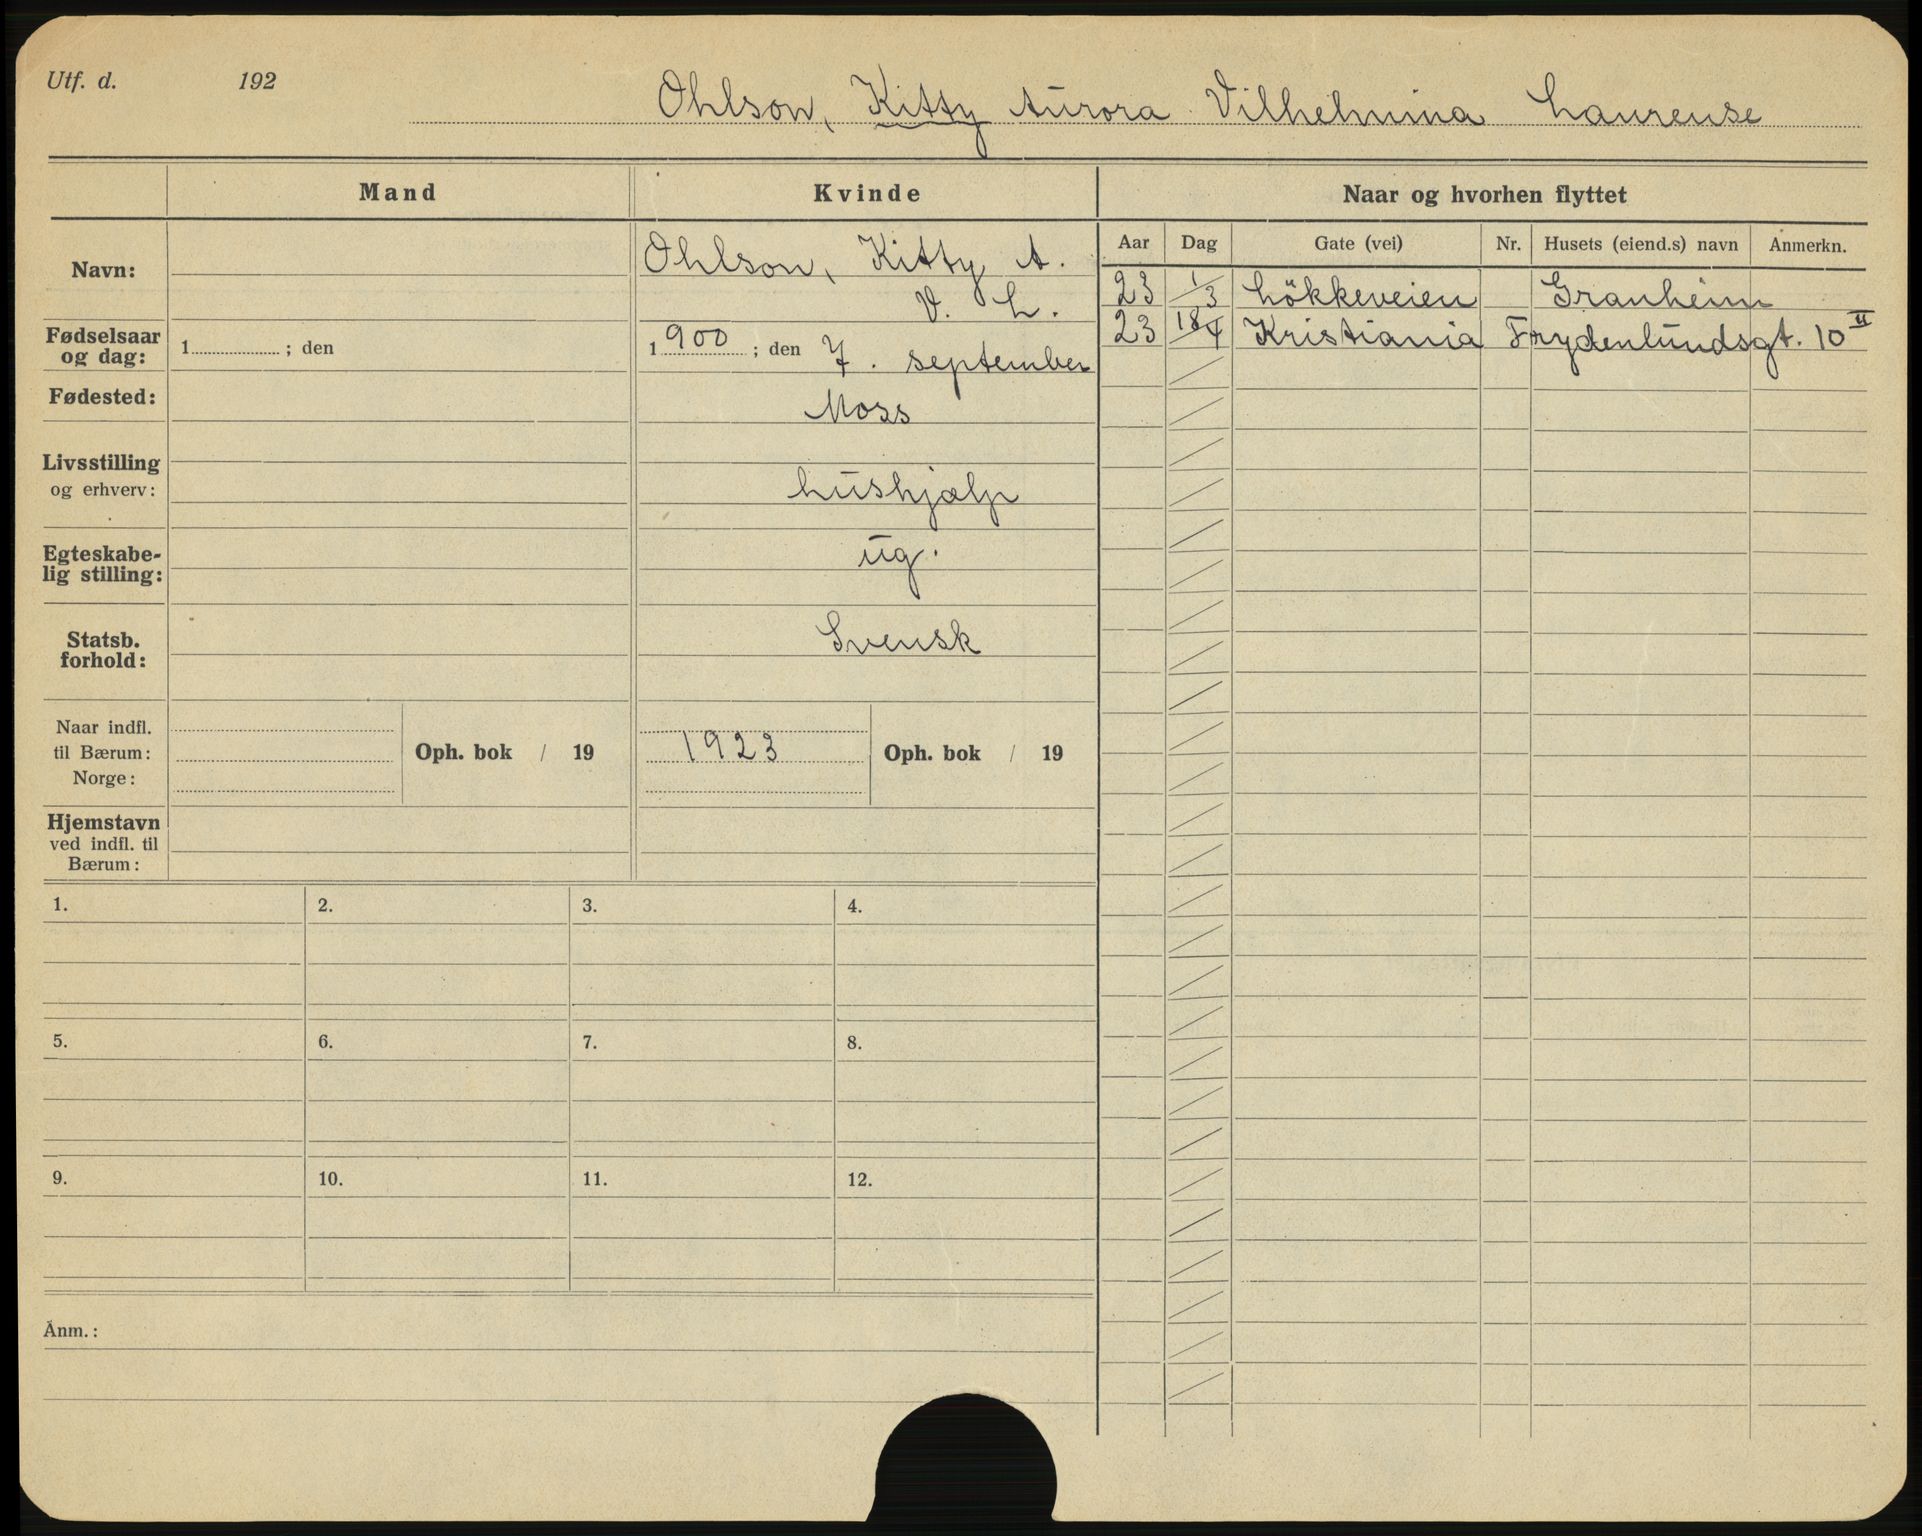 Utf. d. 192
Ohlson, Kitty Aurora Vilhelmina Laurense
Mand Kvinde Naar og hvorhen flyttet
Aar Dag Gate (vei) Nr. Husets (eiend.s) navn Anmerkn.
Navn: Ohlson, Kitty A.
V. L.
23 1/3 Lökkeveien Granheim
23 18/4 Kristiania Frydenlundsgt. 10 II
Fødselsaar
og dag: 1 ; den 1900 ; den 7. september
Fødested: Moss
Livsstilling
og erhverv: hushjælp
Egteskabe-
lig stilling: ug.
Statsb.
forhold: Svensk
Naar indfl.
til Bærum: Oph. bok / 19 1923 Oph. bok / 19
Norge:
Hjemstavn
ved indfl. til
Bærum:
1. 2. 3. 4.
5. 6. 7. 8.
9. 10. 11. 12.
Anm.: